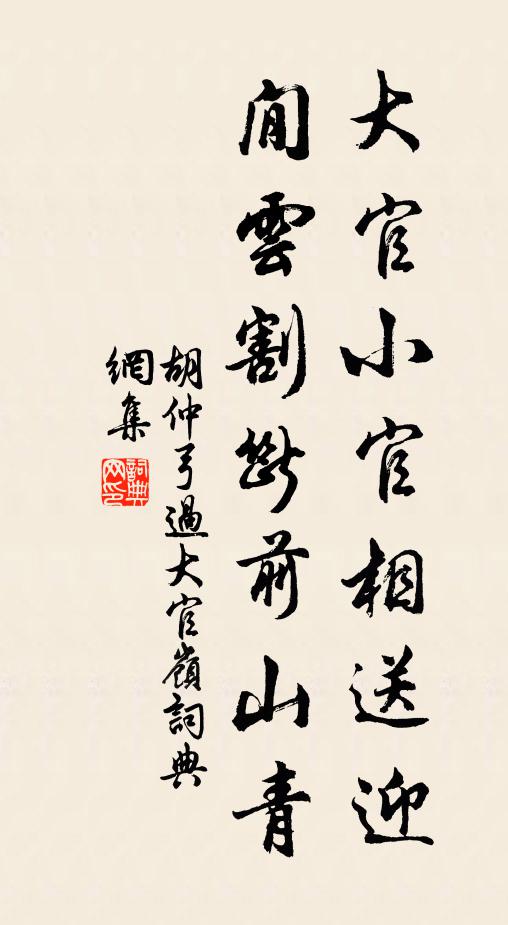 大官小官相送迎
閒雲割斷前山青
胡仲弓過大官嶺詞典
網集
詞典網印